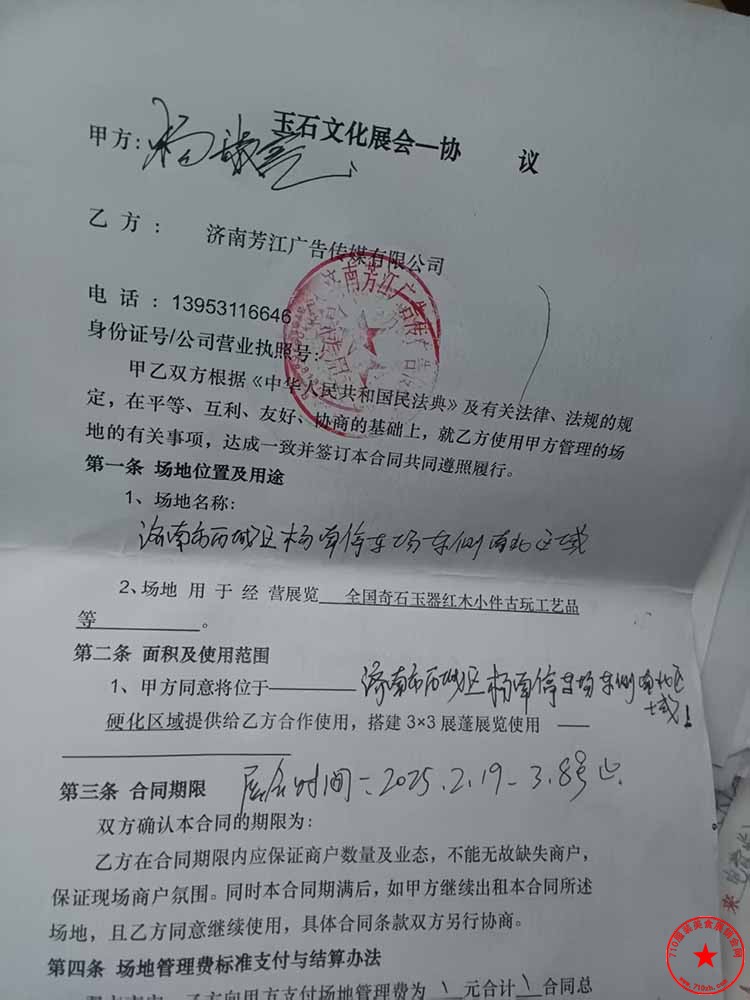 玉石文化展会一协 议
甲方:
乙 方 ： 济南芳江广告传媒有限公司
电 话 : 13953116646
身份证号/公司营业执照号:
甲乙双方根据《中华人民共和国民法典》及有关法律、法规的规
定，在平等、互利、友好、协商的基础上，就乙方使用甲方管理的场
地的有关事项，达成一致并签订本合同共同遵照履行。
第一条 场地位置及用途
1、场地名称:
济南市西城区杨南停车场东侧南北区域
2、场地 用 于 经 营展览 全国奇石玉器红木小件古玩工艺品
等 。
第二条 面积及使用范围
1、甲方同意将位于 济南市西城区杨南停车场东侧南北区
域
硬化区域提供给乙方合作使用，搭建 3×3 展蓬展览使用
第三条 合同期限 展会时间：2025.2.19-3.8号止.
双方确认本合同的期限为:
乙方在合同期限内应保证商户数量及业态，不能无故缺失商户，
保证现场商户氛围。同时本合同期满后，如甲方继续出租本合同所述
场地，且乙方同意继续使用，具体合同条款双方另行协商。
第四条 场地管理费标准支付与结算办法
乙方向甲方支付场地管理费为 \ 元合计 \ 合同总
710服装美食展销会网
www.710zh.com